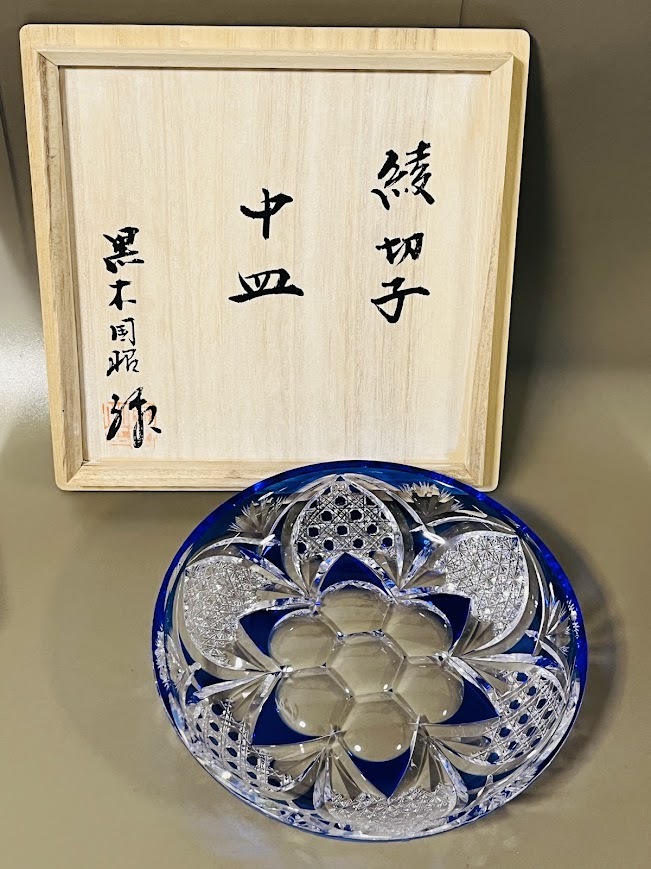 綾切子
中皿
黒木国昭 作